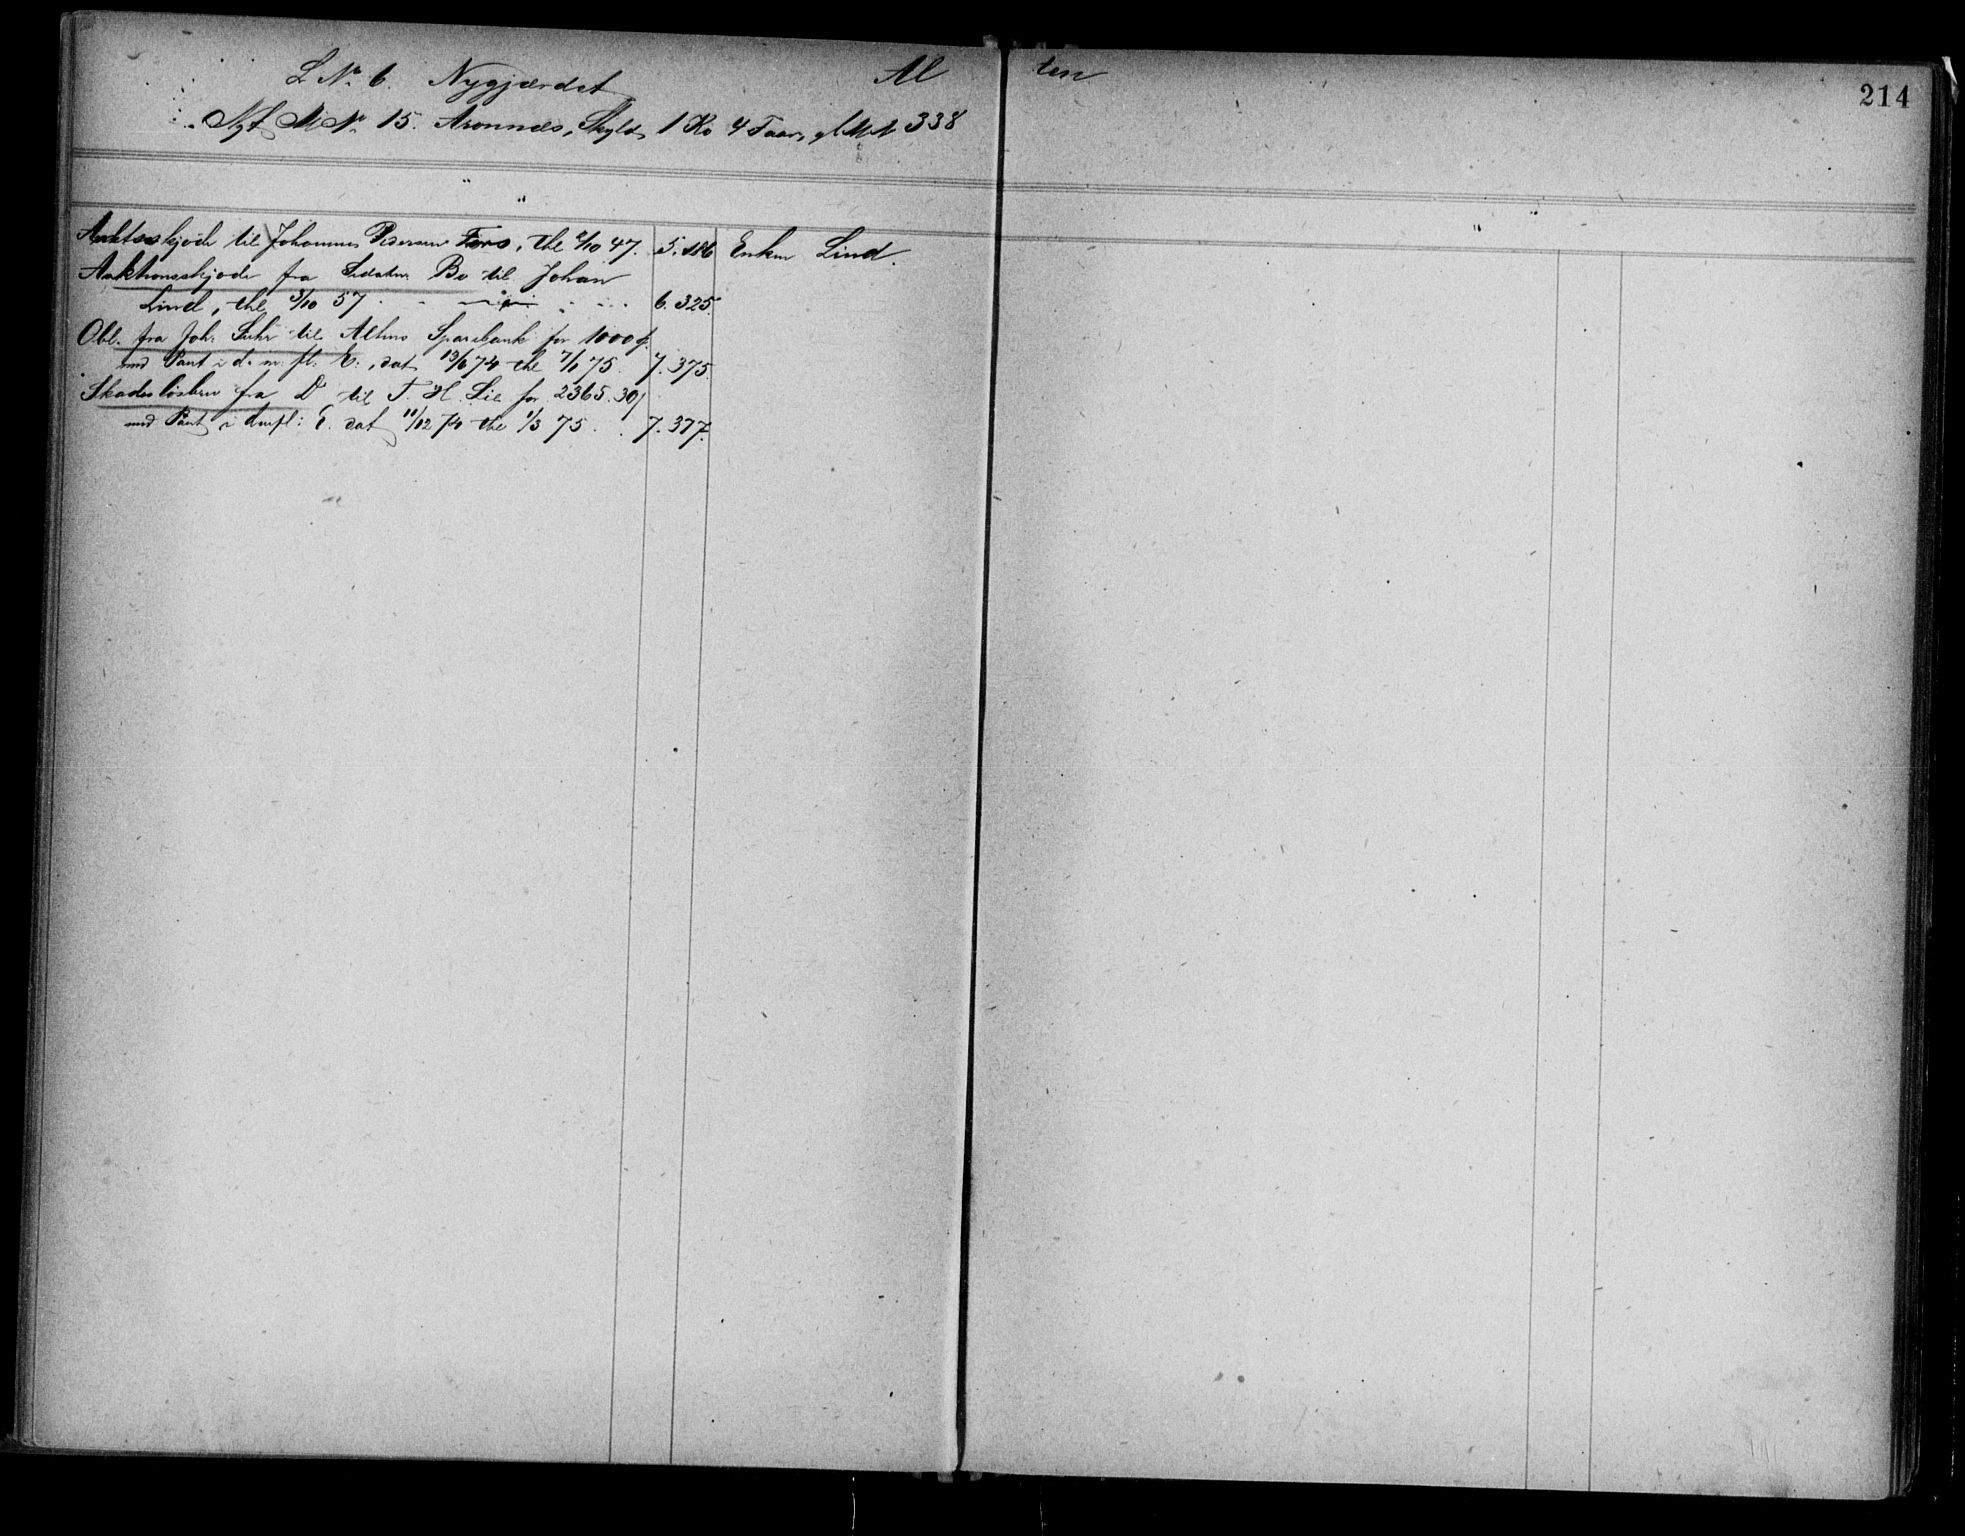 L. № 6. Nygjærdet Al ten 214
Nyt M. № 15. Aronnæs, Skyld 1 Ko 4 Faar, gl. M. № 338
Amtsskjøde til Johannes Pedersen Fors, thl 2/10 47. 5. 186 Enken Lind.
Auktionsskjøde fra Bo til Johan
Lind, thl 3/10 57 6. 325.
Obl. fra Joh. til Altens Sparebank for 1000
med Pant i d. m. fl. E., dat 13/6 74 thl 7/1 75. 7. 375.
Skadesløsbrev fra Do til T. H. Lie for 2365. 30
med Pant i dmfl: E. dat 11/12 74 thl 1/3 75. 7. 377.